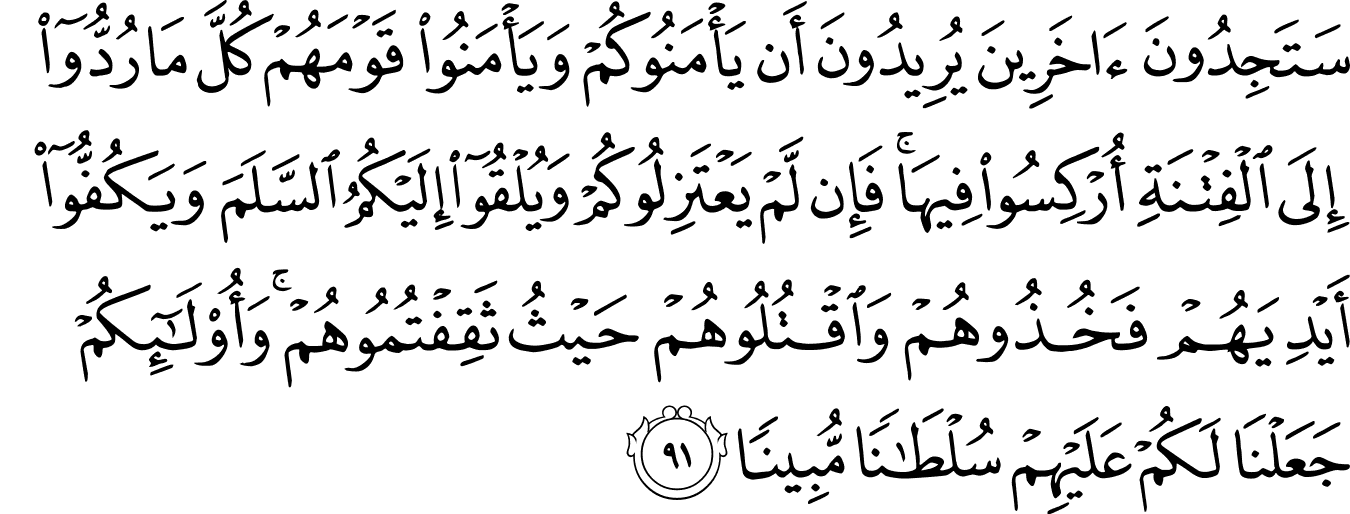 سَتَجِدُونَ ءَاخَرِينَ يُرِيدُونَ أَن يَأْمَنُوكُمْ وَيَأْمَنُوا۟ قَوْمَهُمْ كُلَّ مَا رُدُّوٓا۟
إِلَى ٱلْفِتْنَةِ أُرْكِسُوا۟ فِيهَا ۚ فَإِن لَّمْ يَعْتَزِلُوكُمْ وَيُلْقُوٓا۟ إِلَيْكُمُ ٱلسَّلَمَ وَيَكُفُّوٓا۟
أَيْدِيَهُمْ فَخُذُوهُمْ وَٱقْتُلُوهُمْ حَيْثُ ثَقِفْتُمُوهُمْ ۚ وَأُو۟لَـٰٓئِكُمْ
جَعَلْنَا لَكُمْ عَلَيْهِمْ سُلْطَـٰنًا مُّبِينًا ٩١